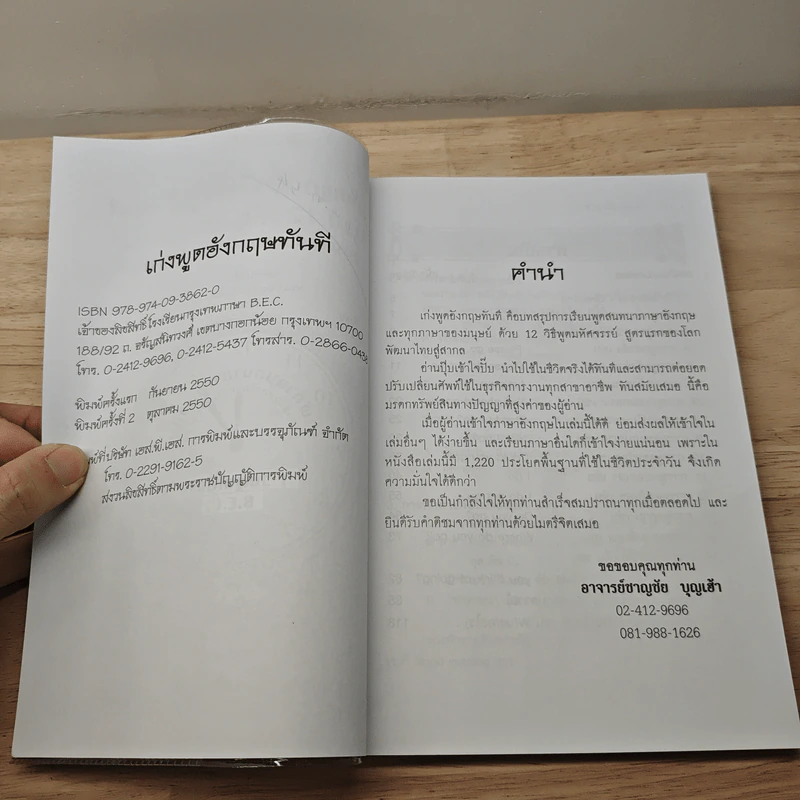 เก่งพูดอังกฤษทันที
ISBN 978-974-09-3862-0
เจ้าของลิขสิทธิ์โรงเรียนกรุงเทพภาษา B.E.C.
188/92 ถ. จรัญสนิทวงศ์ เขตบางกอกน้อย กรุงเทพฯ 10700
โทร. 0-2412-9696, 0-2412-5437 โทรสาร. 0-2866-0436
พิมพ์ครั้งแรก กันยายน 2550
พิมพ์ครั้งที่ 2 ตุลาคม 2550
ที่บริษัท เอส.พี.เอส. การพิมพ์และบรรจุภัณฑ์ จำกัด
โทร. 0-2291-9162-5
สงวนลิขสิทธิ์ตามพระราชบัญญัติการพิมพ์
คำนำ
เก่งพูดอังกฤษทันที คือบทสรุปการเรียนพูดสนทนาภาษาอังกฤษ
และทุกภาษาของมนุษย์ ด้วย 12 วิธีพูดมหัศจรรย์ สูตรแรกของโลก
พัฒนาไทยสู่สากล
อ่านปุ๊บเข้าใจปั๊บ นำไปใช้ในชีวิตจริงได้ทันทีและสามารถต่อยอด
ปรับเปลี่ยนศัพท์ใช้ในธุรกิจการงานทุกสาขาอาชีพ ทันสมัยเสมอ นี้คือ
มรดกทรัพย์สินทางปัญญาที่สูงค่าของผู้อ่าน
เมื่อผู้อ่านเข้าใจภาษาอังกฤษในเล่มนี้ได้ดี ย่อมส่งผลให้เข้าใจใน
เล่มอื่นๆ ได้ง่ายขึ้น และเรียนภาษาอื่นใดก็เข้าใจง่ายแน่นอน เพราะใน
หนังสือเล่มนี้มี 1,220 ประโยคพื้นฐานที่ใช้ในชีวิตประจำวัน จึงเกิด
ความมั่นใจได้ดีกว่า
ขอเป็นกำลังใจให้ทุกท่านสำเร็จสมปรารถนาทุกเมื่อตลอดไป และ
ยินดีรับคำติชมจากทุกท่านด้วยไมตรีจิตเสมอ
ขอขอบคุณทุกท่าน
อาจารย์ชาญชัย บุญเฮ้า
02-412-9696
081-988-1626